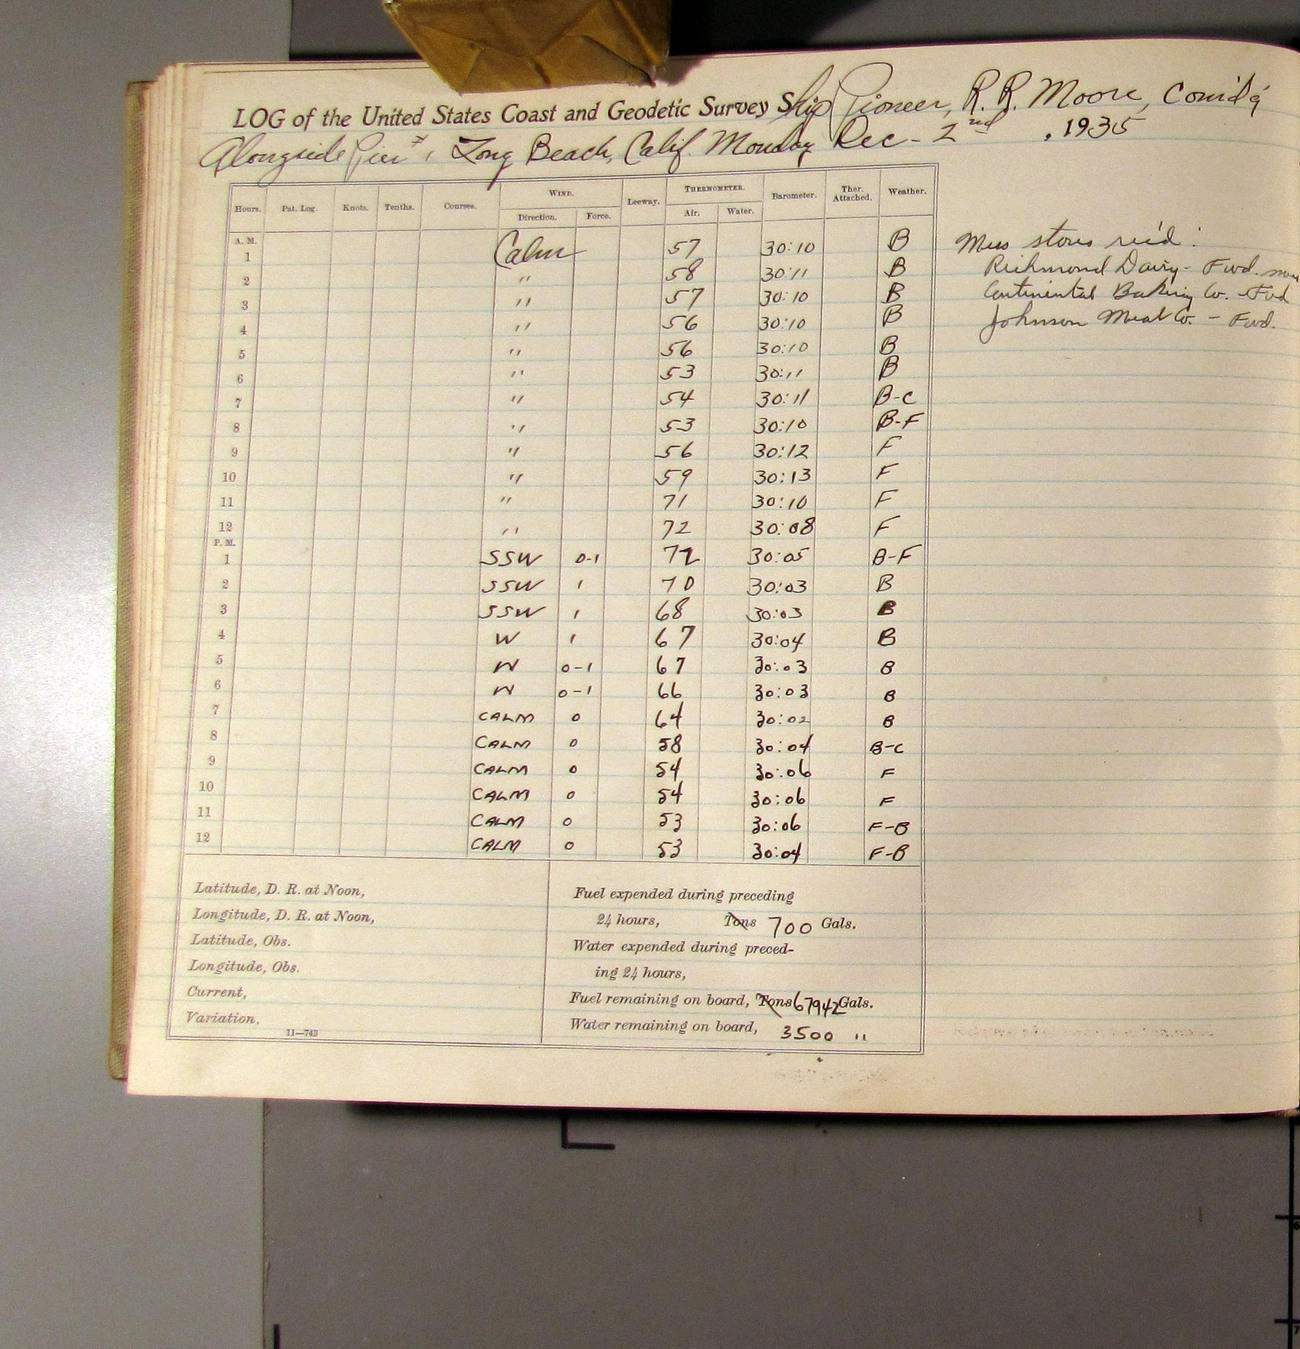 LOG of the United States Coast and Geodetic Survey Ship Pioneer, R. R. Moore, Com'd'g
Alongside Pier #1, Long Beach, Calif. Monday Dec - 2nd, 1935
Hours. Pat. Log. Knots. Tenths. Courses. WIND. Leeway. THERMOMETER. Barometer. Ther. Attached. Weather.
Direction. Force. Air. Water.
A. M.
1 Calm 57 30:10 B
2 " 58 30:11 B
3 " 57 30:10 B
4 " 56 30:10 B
5 " 56 30:10 B
6 " 53 30:11 B
7 " 54 30:11 B-C
8 " 53 30:10 B-F
9 " 56 30:12 F
10 " 59 30:13 F
11 " 71 30:10 F
12 " 72 30:08 F
P. M.
1 SSW 0-1 72 30:05 B-F
2 SSW 1 70 30:03 B
3 SSW 1 68 30:03 B
4 W 1 67 30:04 B
5 W 0-1 67 30:03 B
6 W 0-1 66 30:03 B
7 CALM 0 64 30:02 B
8 CALM 0 58 30:04 B-C
9 CALM 0 54 30:06 F
10 CALM 0 54 30:06 F
11 CALM 0 53 30:06 F-B
12 CALM 0 53 30:04 F-B
Mess stores rec'd:
Richmond Dairy - Fwd.
Continental Baking Co. - Fwd
Johnson Meat Co. - Fwd.
Latitude, D. R. at Noon,
Longitude, D. R. at Noon,
Latitude, Obs.
Longitude, Obs.
Current,
Variation,
11—743
Fuel expended during preceding
24 hours, Tons 700 Gals.
Water expended during preced-
ing 24 hours,
Fuel remaining on board, Tons 67942 Gals.
Water remaining on board, 3500 "